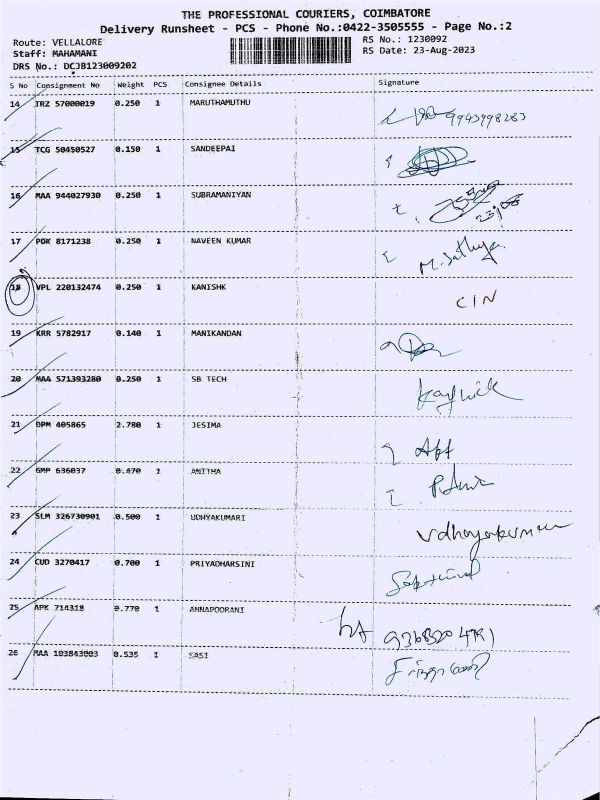 THE PROFESSIONAL COURIERS, COIMBATORE
Delivery Runsheet - PCS - Phone No.:0422-3505555 - Page No.:2
Route: VELLALORE
RS No.: 1230092
Staff: MAHAMANI
RS Date: 23-Aug-2023
DRS No.: DCJB123009202
S No Consignment No Weight PCS Consignee Details Signature
14 TRZ 57000019 0.250 1 MARUTHAMUTHU
15 TCG 50450527 0.150 1 SANDEEPAI
16 MAA 944027930 0.250 1 SUBRAMANIYAN
17 PDK 8171238 0.250 1 NAVEEN KUMAR M. Sathya
18 VPL 220132474 0.250 1 KANISHK CIN
19 KRR 5782917 0.140 1 MANIKANDAN
20 MAA 571393280 0.250 1 SB TECH
21 DPM 405865 2.780 1 JESIMA
22 GMP 636037 0.470 1 ANITHA
23 SLM 326730901 0.500 1 UDHYAKUMARI
24 CUD 3270417 0.700 1 PRIYADHARSINI
25 APK 714318 0.770 1 ANNAPOORANI
26 MAA 103843003 0.535 1 SASI